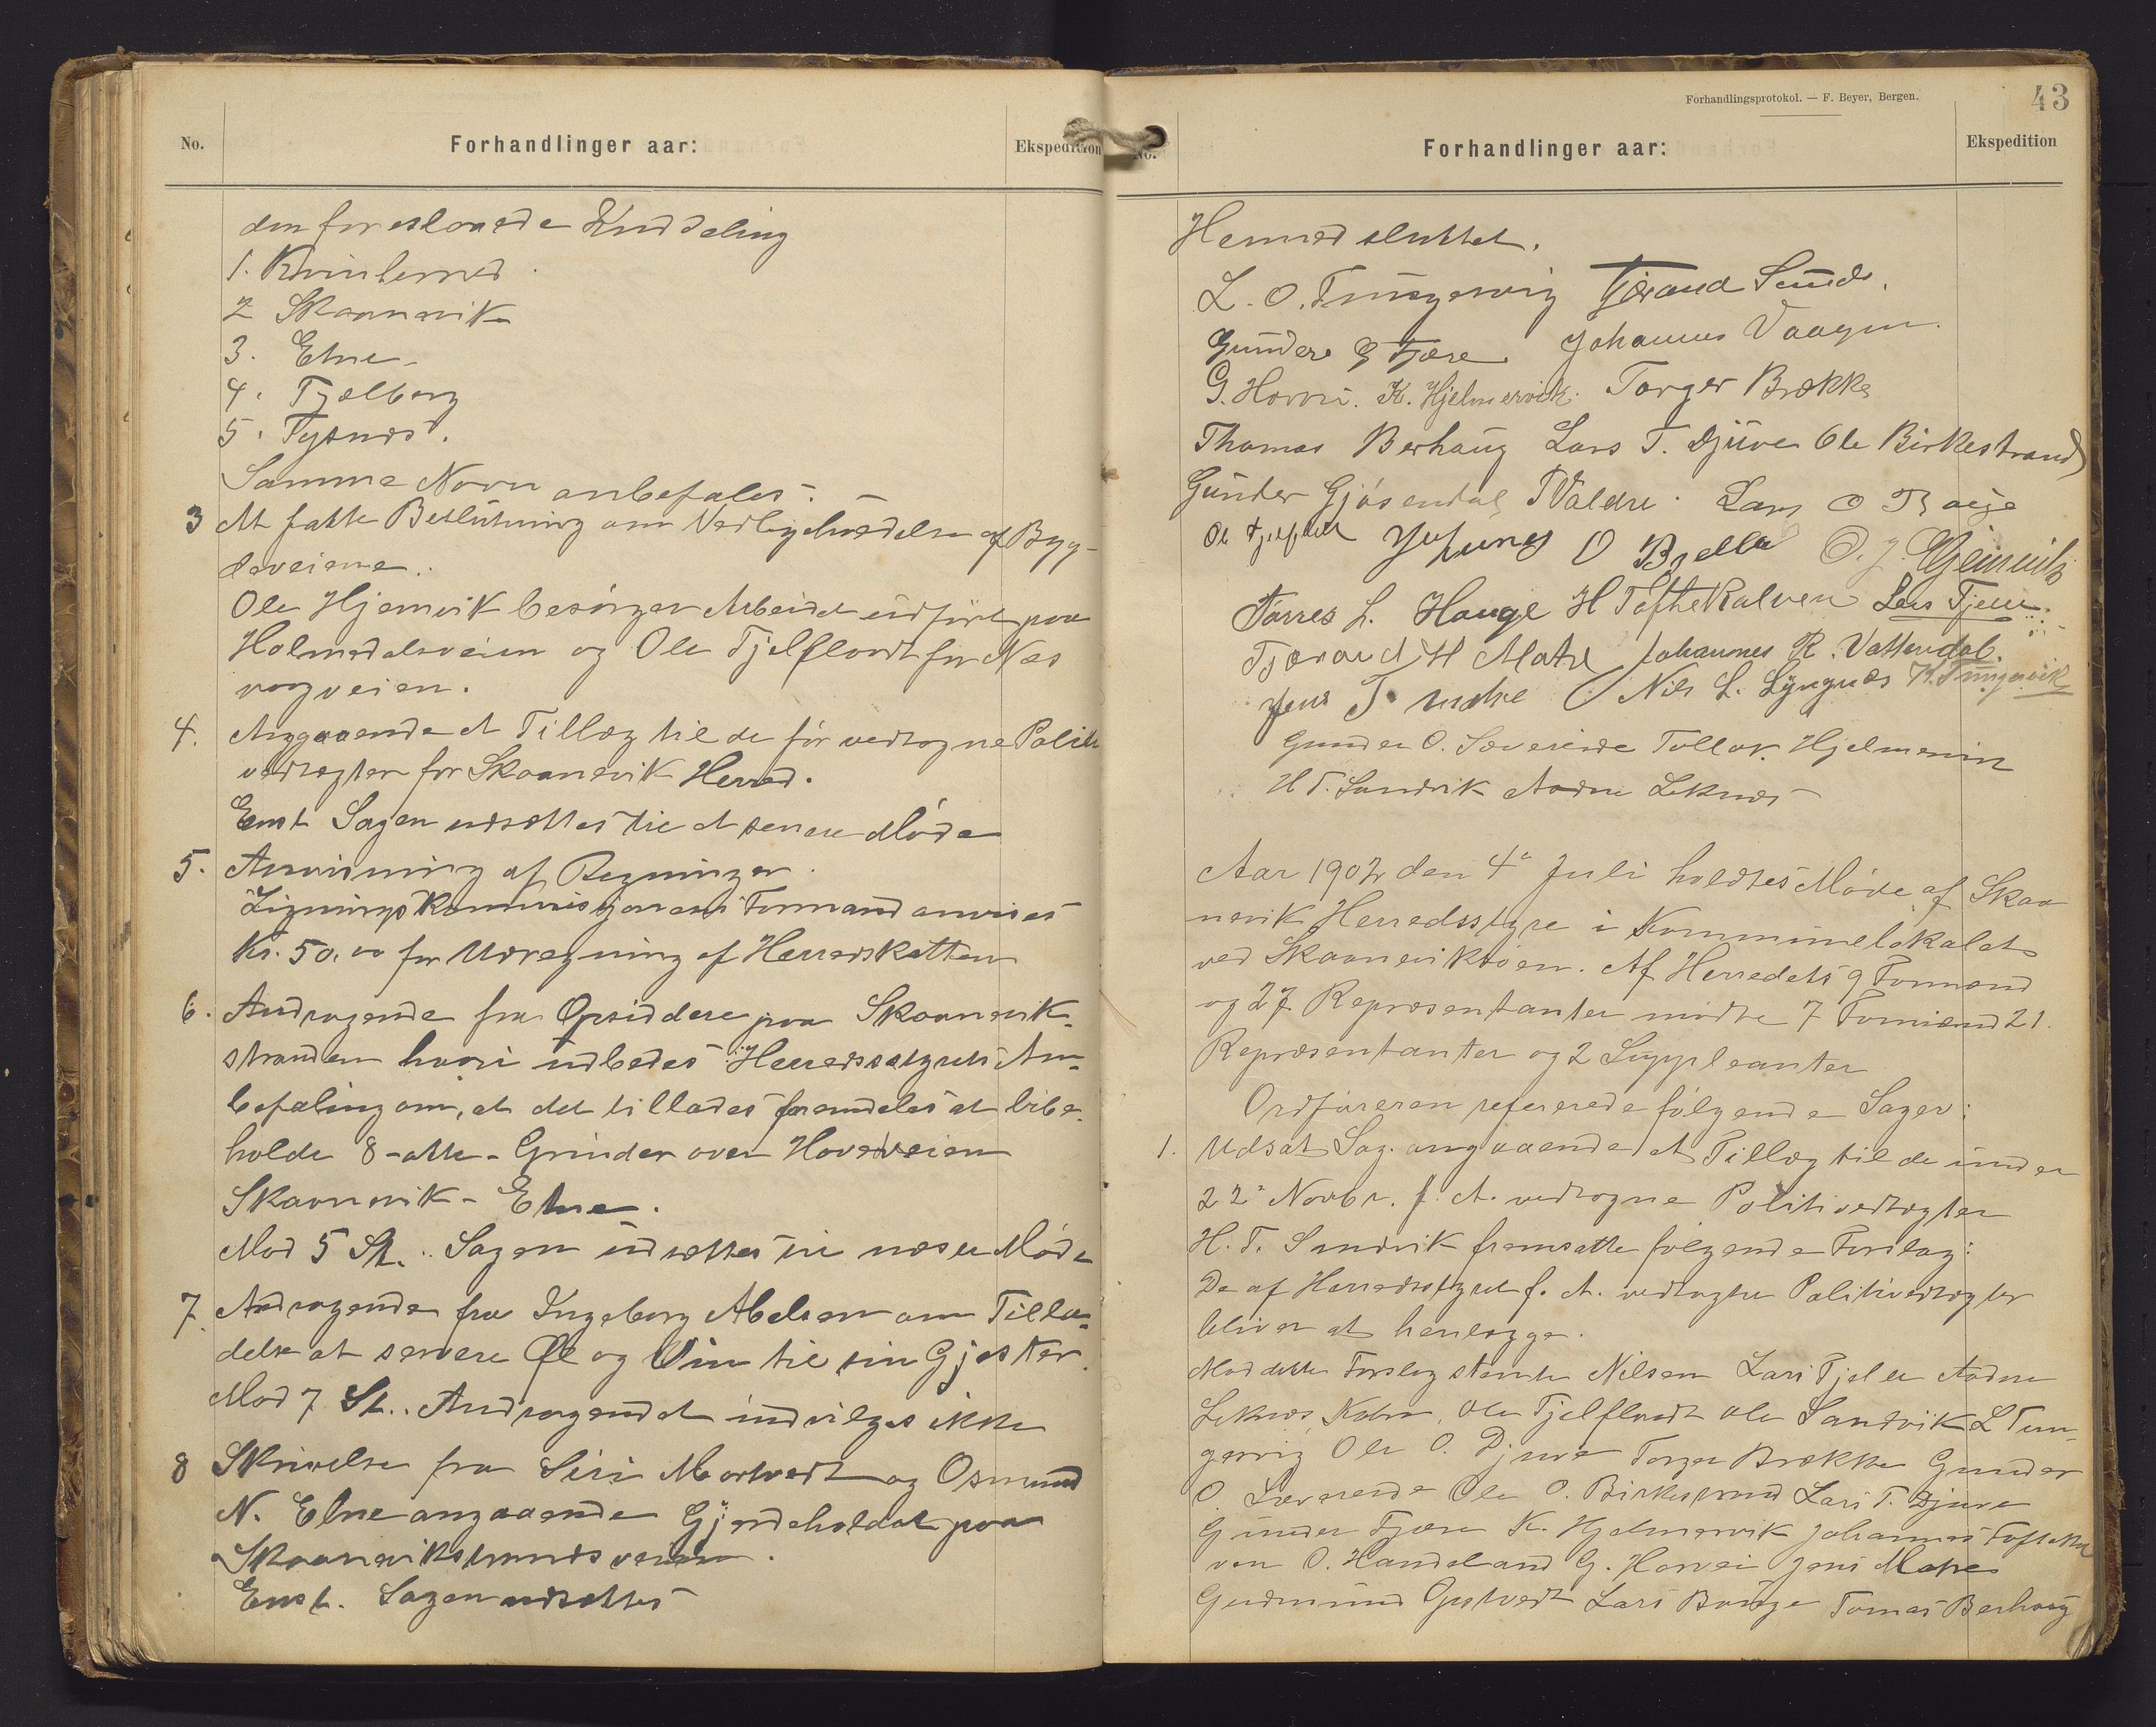 No.
Forhandlinger aar:
Ekspedition
den foreslaaede Inddeling
1. Kvinherred.
2 Skaanevik
3. Etne
4. Fjelberg
5. Tysnes.
Samme Navn anbefales.
3 At fatte Beslutning om Vedligeholdelse af Byg-
deveiene.
Ole Hjemvik besörger Arbeidet udført paa
Holmedalsveien og Ole Fjelflaadt for Næs
vaagveien.
4. Angaaende et Tillæg til de før vedtagne Politi
vedtægter for Skaanevik Herred.
Enst Sagen udsættes til et senere Møde
5. Anvisning af Regninger.
Ligningskommissjonens Formand anvises
Kr. 50,00 for Udregning af Herredskatten
6. Andragende fra Opsiddere paa Skaanevik-
stranden hvori udbedes Herredsstyrets An-
befaling om, at det tillades fremdeles at bibe-
holde 8-otte-Grinder over Hovedveien
Skaanevik-Etne.
Mod 5 St. Sagen udsættes til næste Møde
7. Andragende fra Ingeborg Abelsen om Tilla-
delse at servere Øl og Vin til sin Gjester.
Mod 7 St. Andragendet indvilges ikke
8 Skrivelse fra Siri Mortvedt og Osmund
N. Etne angaaende Gjerdeholdet paa
Skaanevikstrandsveien.
Enst. Sagen udsættes
Forhandlingsprotokol. — F. Beyer, Bergen.
43
No.
Forhandlinger aar:
Ekspedition
Hermed sluttet.
L. O. Tungesvig Tjerand Sunde.
Gunder G Fjære Johannes Vaagen.
G. Horvei. K. Hjelmervik. Torger Brekke
Thomas Berhaug Lars T. Djuve Ole Birkestrand
Gunder Gjøsendal T Valdre. Lars O Bauge
O. J.
Torres L. Hauge H Toftekalven Lars Fjelle
Tjerand H Matre Johannes R. Vattendal.
Jens T. Matre Nils L. Lyngnes K. Tungesvik
Gunder O. Sævereide Tollak Hjelmevin
H T. Sandvik Aadne Leknes
Aar 1902 den 4e Juli holdtes Møde af Skaa
nevik Herredsstyre i Kommunelokalet
ved Skaanevikøen. Af Herredets 9 Formænd
og 27 Repræsentanter mødte 7 Formænd 21.
Repræsentanter og 2 Suppleanter
Ordføreren refererede følgende Sager:
1. Udsat Sag angaaende et Tillæg til de under
22e Novbr. f. A. vedtagne Politivedtægter
H. T. Sandvik fremsatte følgende Forslag:
De af Herredsstyret f. A. vedtagne Politivedtægter
bliver at henlægge.
Mod dette Forslag stemte Nilsen Lars Fjelle Aadne
Leknes, Ole Fjelflaadt Ole Sandvik L Tun-
gesvig Ole O. Djuve Torger Brekke Gunder
O. Sævereide Ole O. Birkestrand Lars T. Djuve
Gunder Fjære K. Hjelmervik Johannes Toftekal
ven O. Handeland G. Horvei Jens Matre
Gudmund Opstvedt Lars Bauge Tomas Berhaug